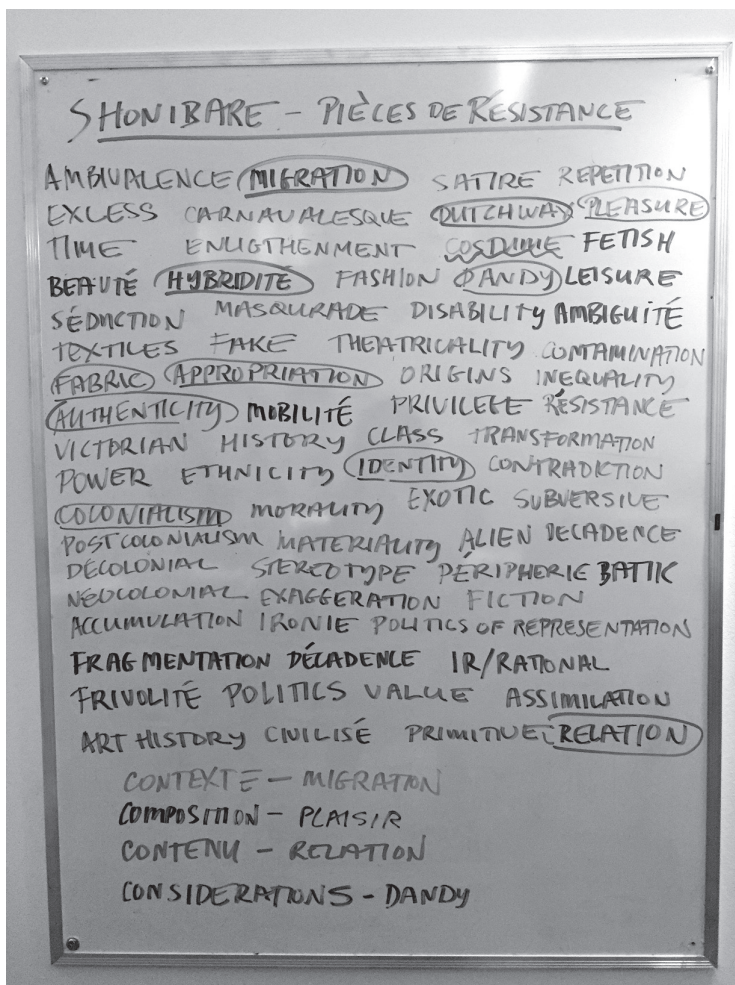 SHONIBARE - PIÈCES DE RÉSISTANCE
AMBIVALENCE MIGRATION SATIRE REPETITION
EXCESS CARNAVALESQUE DUTCHWAX PLEASURE
TIME ENLIGTHENMENT COSTUME FETISH
BEAUTÉ HYBRIDITÉ FASHION DANDY LEISURE
SÉDUCTION MASQURADE DISABILITY AMBIGUITÉ
TEXTILES FAKE THEATRICALITY CONTAMINATION
FABRIC APPROPRIATION ORIGINS INEQUALITY
AUTHENTICITY MOBILITÉ PRIVILEGE RÉSISTANCE
VICTORIAN HISTORY CLASS TRANSFORMATION
POWER ETHNICITY IDENTITY CONTRADICTION
COLONIALISM MORALITY EXOTIC SUBVERSIVE
POSTCOLONIALISM MATERIALITY ALIEN DECADENCE
DÉCOLONIAL STEREOTYPE PÉRIPHERIE BATTIK
NEOCOLONIAL EXAGGERATION FICTION
ACCUMULATION IRONIE POLITICS OF REPRESENTATION
FRAGMENTATION DÉCADENCE IR/RATIONAL
FRIVOLITÉ POLITICS VALUE ASSIMILATION
ART HISTORY CIVILISÉ PRIMITIVE RELATION
CONTEXTE - MIGRATION
COMPOSITION - PLAISIR
CONTENU - RELATION
CONSIDERATIONS - DANDY